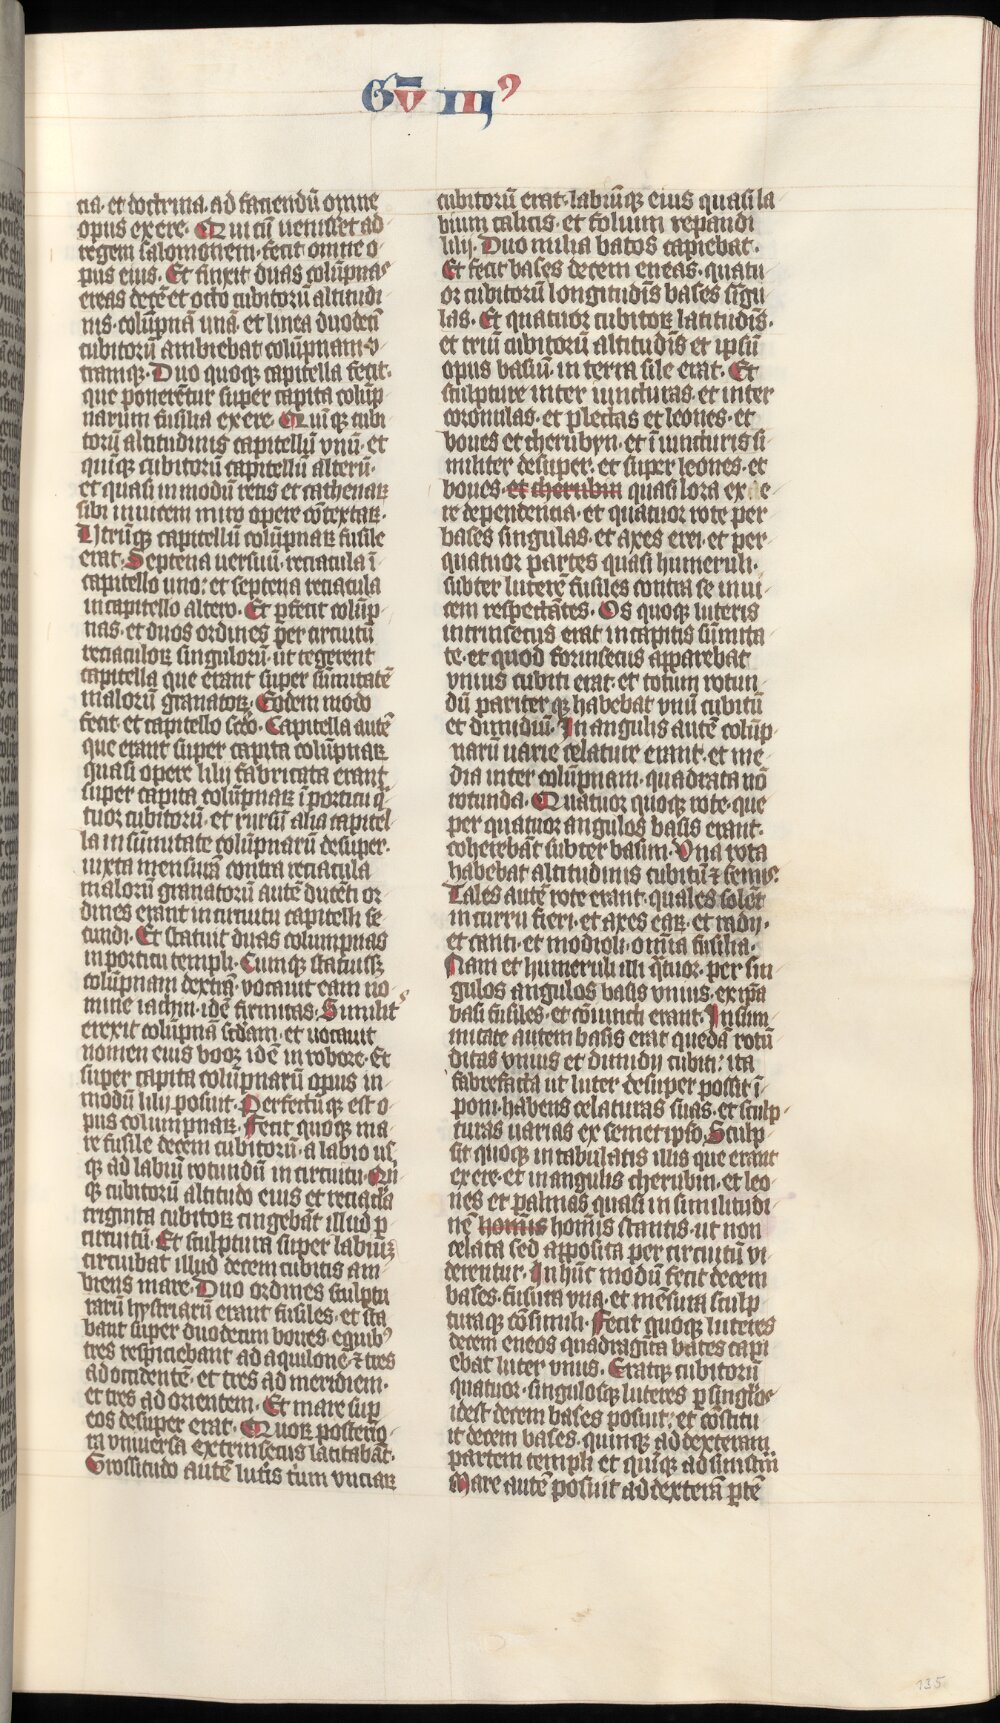 Gū III⁹
cia· et doctrina· ad faciendū omne
opus ex ere· Qui cū uenisset ad
regem salomonem· fecit omne o
pus eius· Et finxit duas colūpnas
ereas decē et octo cubitorū altitudi
nis· colūpnā unā· et linea duodecī
cubitorū ambiebat colūpnam v
tramqꝫ· Duo quoqꝫ capitella fecit·
que ponerētur super capita colūp
narum fusilia ex ere· Quiqꝫ cubi
torū altitudinis capitellū vnū· et
quīqꝫ cubitorū capitellū alterū·
et quasi in modū retis et cathenaꝝ
sibi inuicem miro opere cōtextaꝝ·
Utrūqꝫ capitellū colūpnaꝝ fusile
erat· Septena uersuū· reciacula ī
capitello uno: et septena reciacula
in capitello altero· Et pfecit colūp
nas· et duos ordines per circuitū
reciaculoꝝ singulorū· ut tegerent
capitella que erant super sūmitatē
malorū granatoꝝ· Eodem modo
fecit· et capitello scd̄o· Capitella autē
que erant super capita colūpnaꝝ
quasi opere lilij fabricata erant
super capita colūpnaꝝ ī porticu q̄
tuor cubitorū· et rursū alia capitel
la in sūmitate colūpnarū desuper·
iuxta mensurā contra reciacula
malorū granatorū autē ducēti or
dines erant in circuitu capitelli se
cundi· Et statuit duas columpnas
in porticu templi· Cumqꝫ statuissꝫ
colūpnam dextrā· vocauit eam no
mine iachin· idē firmitas· Similit͛
erexit colūpnā scd̄am· et uocauit
nomen eius booꝫ idē in robore· Et
super capita colūpnarū opus in
modū lilij posuit· Perfectūqꝫ est o
pus columpnaꝝ· Fecit quoqꝫ ma
re fusile decem cubitorū· a labio us
qꝫ ad labiū rotundū in circuitu· Quī
qꝫ cubitorū altitudo eius et reciacl̄a
triginta cubitoꝝ cingebāt illud ꝑ
circuitū· Et sculptura super labiuꝫ
circuibat illud decem cubitis am
biens mare· Duo ordines sculptu
rarū hystriarū erant fusiles· et sta
bant super duodecim boues· e quibꝰ
tres respiciebant ad aquilonē· ⁊ tres
ad occidentē· et tres ad meridiem·
et tres ad orientem· Et mare sup
eos desuper erat· Quoꝝ posterio
ra vniuersa extrinsecus latitabāt·
Grossitudo autē lutis trium vnciaꝝ
cubitorū erat· labiūqꝫ eius quasi la
bium calicis· et folium repandi
lilij· Duo milia batos capiebat·
Et fecit bases decem eneas· quatu
or cubitorū longitudīs bases sīgu
las· Et quatuor cubitoꝝ latitudīs·
et triū cubitorū altitudīs et ipsū
opus basiū· in terra sile erat· Et
sculpture inter iuncturas· et inter
coronulas· et plectas et leones· et
boues et cherubyn· et ī iuncturis si
militer desuper· et super leones· et
boues· et cherubin quasi lora ex e
re dependencia· et quatuor rote per
bases singulas· et axes erei· et per
quatuor partes quasi humeruli·
subter luterē fusiles contra se inui
cem respectātes· Os quoqꝫ luteris
intrinsecus erat in capitis sūmita
te· et quod forinsecus apparebat
vnius cubiti erat· et totum rotun
dū pariterqꝫ habebat vnū cubitū
et dimidiū· In angulis autē colūp
narū uarie celature erant· et me
dia inter colūpnam· quadrata nō
rotunda· Quatuor quoqꝫ rote· que
per quatuor angulos basis erant·
coherebāt subter basim· Vna rota
habebat altitudinis cubitū ⁊ semis·
Tales autē rote erant· quales solēt
in curru fieri· et axes eaꝝ· et radij·
et canti· et modioli· omīa fusilia·
Nam et humeruli illi q̄tuor· per sin
gulos angulos basis vnius· ex ipā
basi fusiles· et cōiuncti erant· In sum
mitate autem basis erat quedā rotū
ditas vnius et dimidij cubiti: ita
fabrefacta ut luter desuper possit ī
poni· habens celaturas suas· et sculp
turas uarias ex semet ipso· Sculp
sit quoqꝫ in tabulatis illis que erant
ex ere· et in angulis cherubin· et leo
nes et palmas quasi in similitudi
nē homīs homīs stantis· ut non
celata sed apposita per circuitū vi
derentur· In hūc modū fecit decem
bases· fusura vna· et mēsura sculp
turaqꝫ cōsimili· Fecit quoqꝫ luteres
decem eneos quadragīta bates capi
ebat luter vnus· Eratqꝫ cubitorū
quatuor· singulosqꝫ luteres ꝑ singl̄os
idest decem bases posuit: et cōstitu
it decem bases· quinqꝫ ad dexteram
partem templi et quīqꝫ ad sinistrā
Mare autē posuit ad dexterā ꝑtē
135